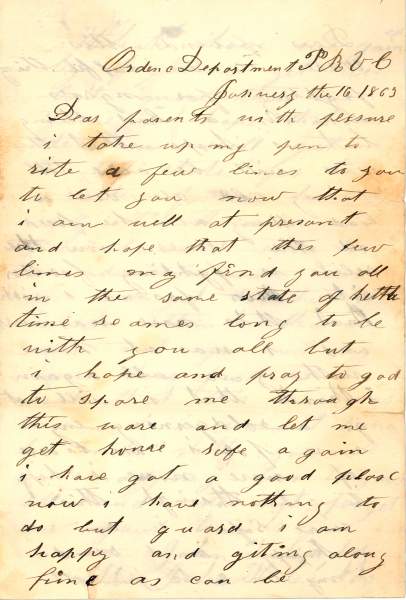 Ordenc Department P R V C
Januery the 16 1863
Dear parents with plesure
i take up my pen to
rite a few lines to you
to let you now that
i am well at present
and hope that thes few
lines my find you all
in the same state of helth
time seames long to be
with you all but
i hope and pray to god
to spare me through
this ware and let me
get home safe a gain
i have got a good plase
now i have nothing to
do but guard i am
happy and giting along
fine as can be